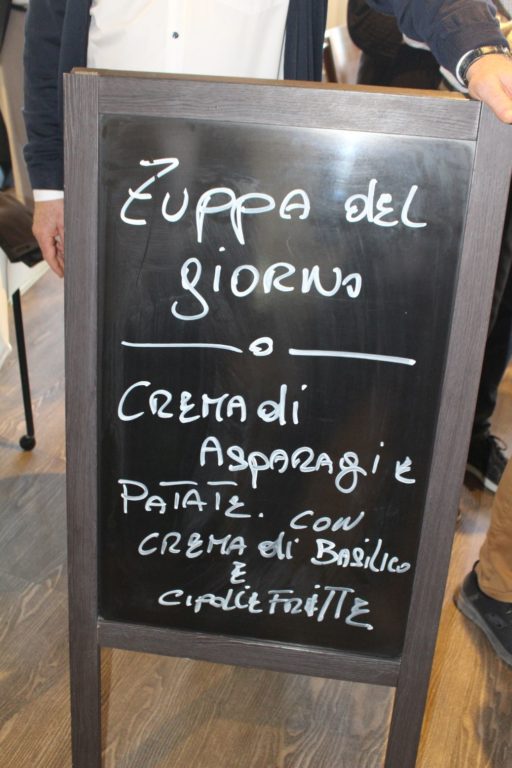 Zuppa del
giorno
Crema di
Asparagi e
Patate. con
crema di Basilico
e
cipolle Fritte